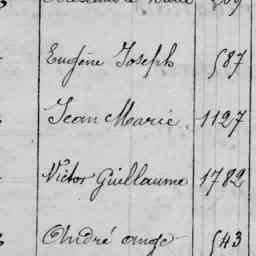 Eugène Joseph 587
Jean Marie 1127
Victor Guillaume 1782
André ange 543